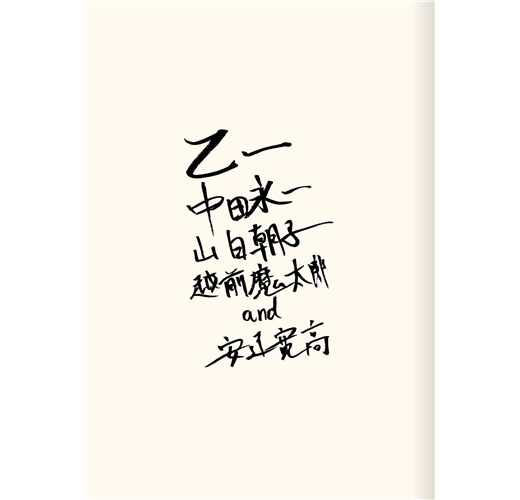 乙一
中田永一
山白朝子
越前魔太郎
and
安辽宽高